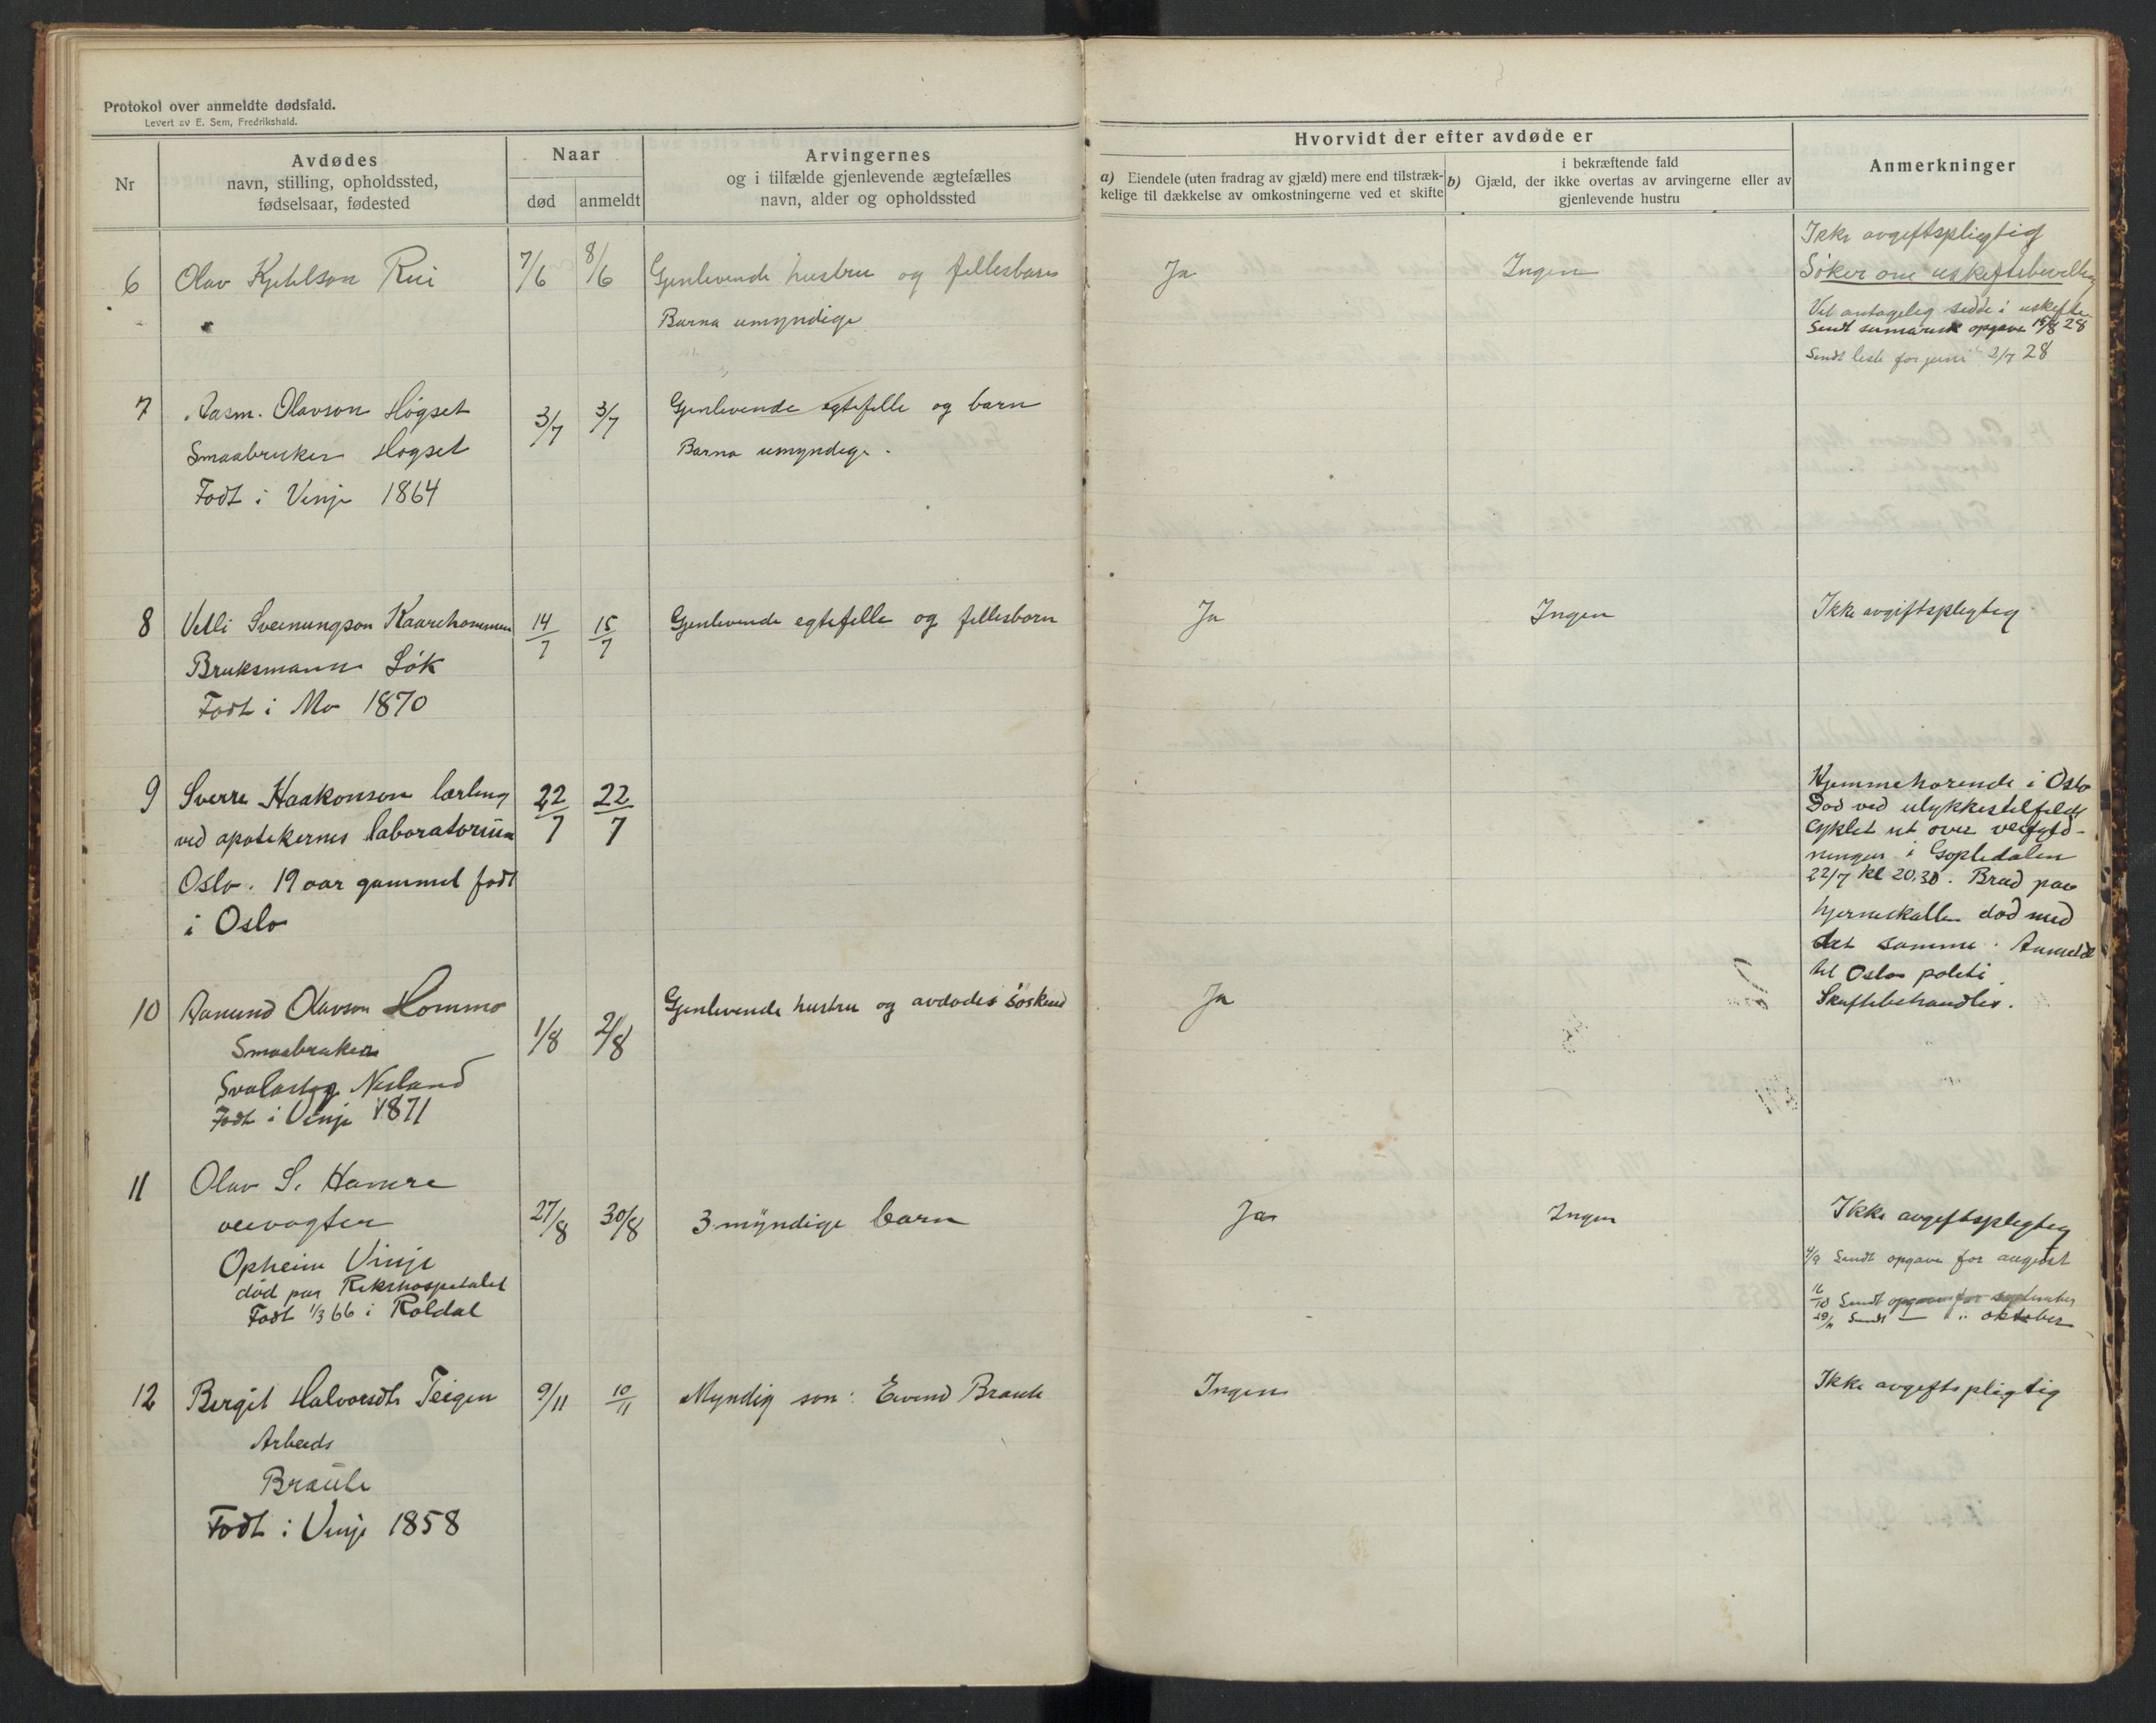 Protokol over anmeldte dødsfald.
Levert av E. Sem, Fredrikshald.
Nr
Avdødes
navn, stilling, opholdssted,
fødselsaar, fødested
Naar
død
anmeldt
Arvingernes
og i tilfælde gjenlevende ægtefælles
navn, alder og opholdssted
Hvorvidt der efter avdøde er
a) Eiendele (uten fradrag av gjæld) mere end tilstræk-
kelige til dækkelse av omkostningerne ved et skifte
i bekræftende fald
b) Gjæld, der ikke overtas av arvingerne eller av
gjenlevende hustru
Anmerkninger
6 Olav Kjetelson Rui
7/6 8/6
Gjenlevende hustru og fellesbarn
Barna umyndige
Ja
Ingen
Ikke avgiftspligtig
Søker om uskiftebevilling
Vil antagelig sidde i uskifte
Sendt sumarisk opgave 15/8 28
Sendt liste for juni 2/7 28
7 Aasm. Olavson Høgset
Smaabruker Høgset
Født i Vinje 1864
3/7 3/7
Gjenlevende egtefelle og barn
Barna umyndige.
8 Vetli Sveinungson Kaarehommen
Bruksmann Løk
Født i Mo 1870
14/7 15/7
Gjenlevende egtefelle og fellesborn
Ja
Ingen
Ikke avgiftspligtig
9 Sverre Haakonson lærling
ved apotekernes laboratorium
Oslo. 19 aar gammel født
i Oslo
22/7 22/7
Hjemmehørende i Oslo
Død ved ulykkestilfelde
cyklet ut over veifyld-
ningen i
22/7 kl 20.30. Brud paa
hjerneskallen død med
det samme. Anmeldt
til Oslo politi
10 Aanund Olavson Hommo
Smaabruker
Svalastog Nesland
Født i Vinje 1871
1/8 2/8
Gjenlevende hustru og avdødes søsken
Ja
Skiftebehandles.
11 Olav S. Hamre
veivogter
Opheim Vinje
død paa Rikshospitalet
Født 1/3 66 i Røldal
27/8 30/8
3 myndige barn
Ja
Ingen
Ikke avgiftspligtig
4/9 Sendt opgave for august
16/10 Sendt opgave for september
29/11 Sendt — " oktober
12 Bergit Halvorsdtr Teigen
Arbeids
Braute
Født i Vinje 1858
9/11 10/11
Myndig søn: Eivind Braute
Ingen
Ikke avgiftspligtig